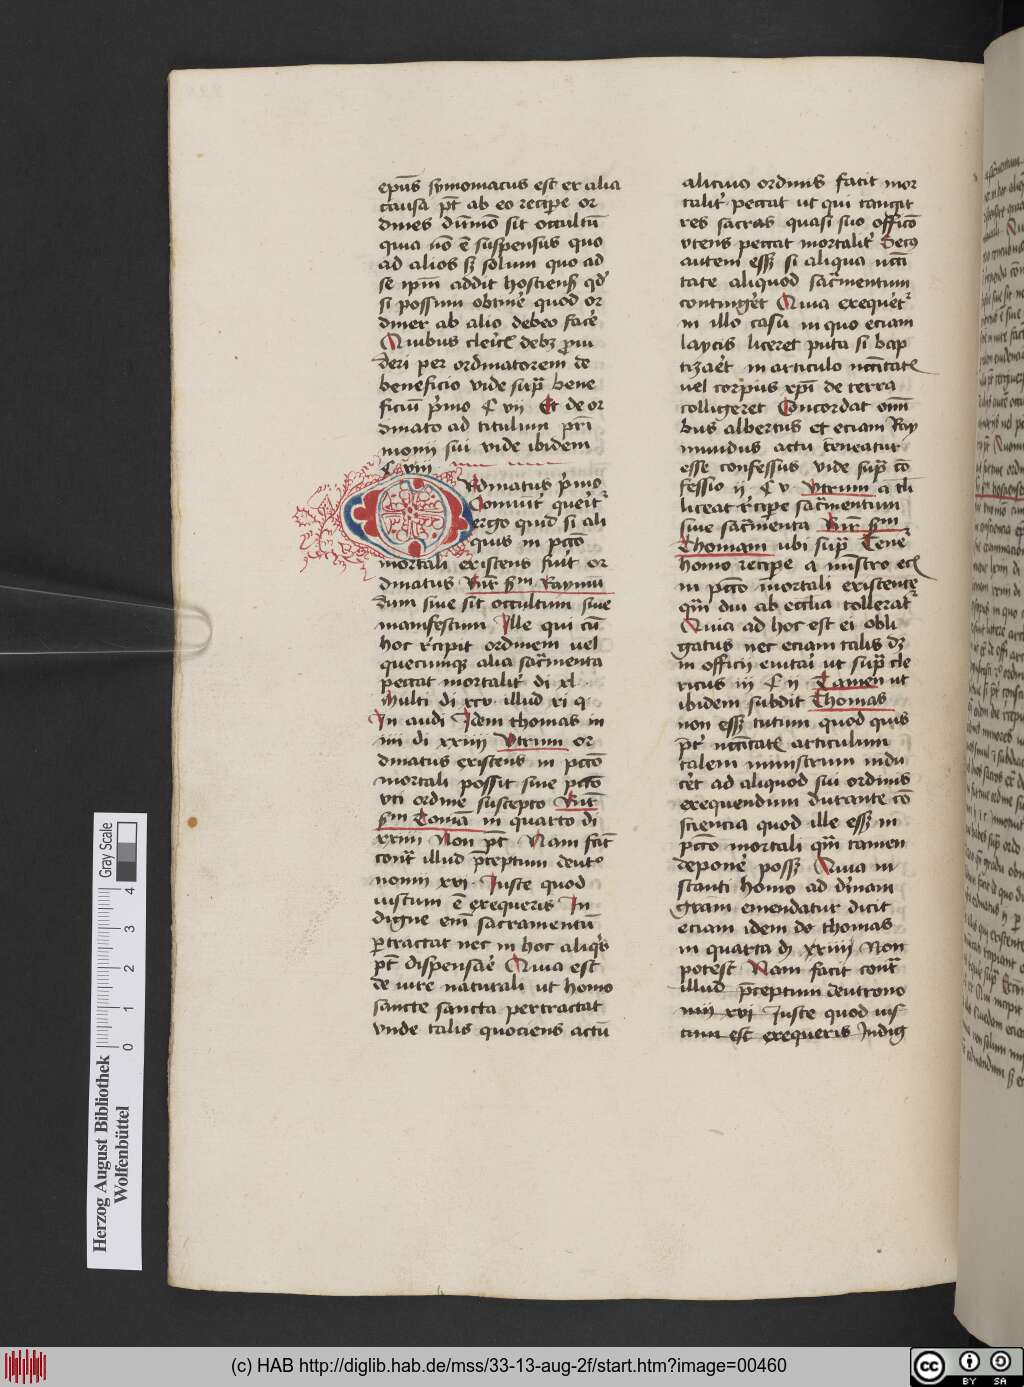 epūs symoniacus est ex alia
causa pt̄ ab eo recipe or
dines dūmō sit occultū
quia nō ē suspensus quo
ad alios sꝫ solum quo ad
se ip̄m addit hostiens̄ qd'
si possum obtine' quod or
diner ab alio debeo face'
Quibus cleric̄ debꝫ p̄ui
deri per ordinatorem de
beneficio vide sup̄ bene
ficiū p'mo ℭ vii Et de or
dinato ad titulum pr̄i
monii sui vide ibidem
ℭ viii
Ordinatus p'mo
Conuīt' querit'
ergo quid si ali
quis in pcc̄o
mortali existens fuīt or
dinatus Rn̄r sm̄ Raymū
dum siue sit occultum siue
manifestum Ille qui cū
hoc recipit ordinem uel
quecumqꝫ alia sac̄rmenta
peccat mortalit' di xl
Multi di xcv illud xi q
In audi Idem thomas in
iiii di xxiiii Utrum or
dinatus existens in pcc̄o
mortali possit siue pcc̄o
vti ordine suscepto Rn̄r
sm̄ Tomā in quarto di
xxiiii Non pt̄ Nam fac̄t
contr̄ illud p̄ceptum deut°
nomii xvi Iuste quod
iustum ē exequeris In
digne em̄ sacramentū
ꝑtractat nec in hoc aliq's
pt̄ dispensāe Quia est
de iure naturali ut homo
sancte sancta pertractat
vnde talis quociens actū
alicuio ordinis facit mor
talit' peccat ut qui tangit
res sacras quasi suo officō
vtens peccat mortalit' Secꝰ
autem essꝫ si aliqua nccī
tate aliquod sac̄rmentum
continge't Quia exeque't'
in illo casu in quo eciam
laycis liceret puta si bap
tizaēt in articulo nccītatꝭ
uel corpus xp̄i de terra
colligeret Concordat omī
bus albertus et eciam Ray
mundus actu teneatur
esse confessus vide sup̄ cō
fessio ii ℭ v Utrum a tl̄i
liceat r'cipe sac̄rmentum
siue sac̄rmenta Rn̄r sm̄
Thomam ubi sup̄ Tene'
homo recipe a mīstro ecꝭ
in pcc̄o mortali existente
qm̄ diu ab ecclīa tollerat'
Quia ad hoc est ei obli
gatus nec eciam talis dꝫ
in officii euitari ut sup̄ cle
ricus iii ℭ ii Tamen ut
ibidem subdit Thomas
non essꝫ tutum quod quis
p̄t' nccītatꝭ articulum
talem ministrum indu
ce't ad aliquod sui ordinis
exequendum durante cō
sciencia quod ille essꝫ in
pcc̄o mortali qm̄ tamen
depone' possꝫ Quia in
stanti homo ad diuīnam
grām emendatur dicit
eciam idem do thomas
in quarta di xxiiii Non
potest Nam facit contr̄
illud p̄ceptum deutrono
mii xvi Iuste quod ius
tum est exequeris Indig
Herzog August Bibliothek
Wolfenbüttel
Gray Scale
0 1 2 3 4
(c) HAB http://diglib.hab.de/mss/33-13-aug-2f/start.htm?image=00460
cc BY SA